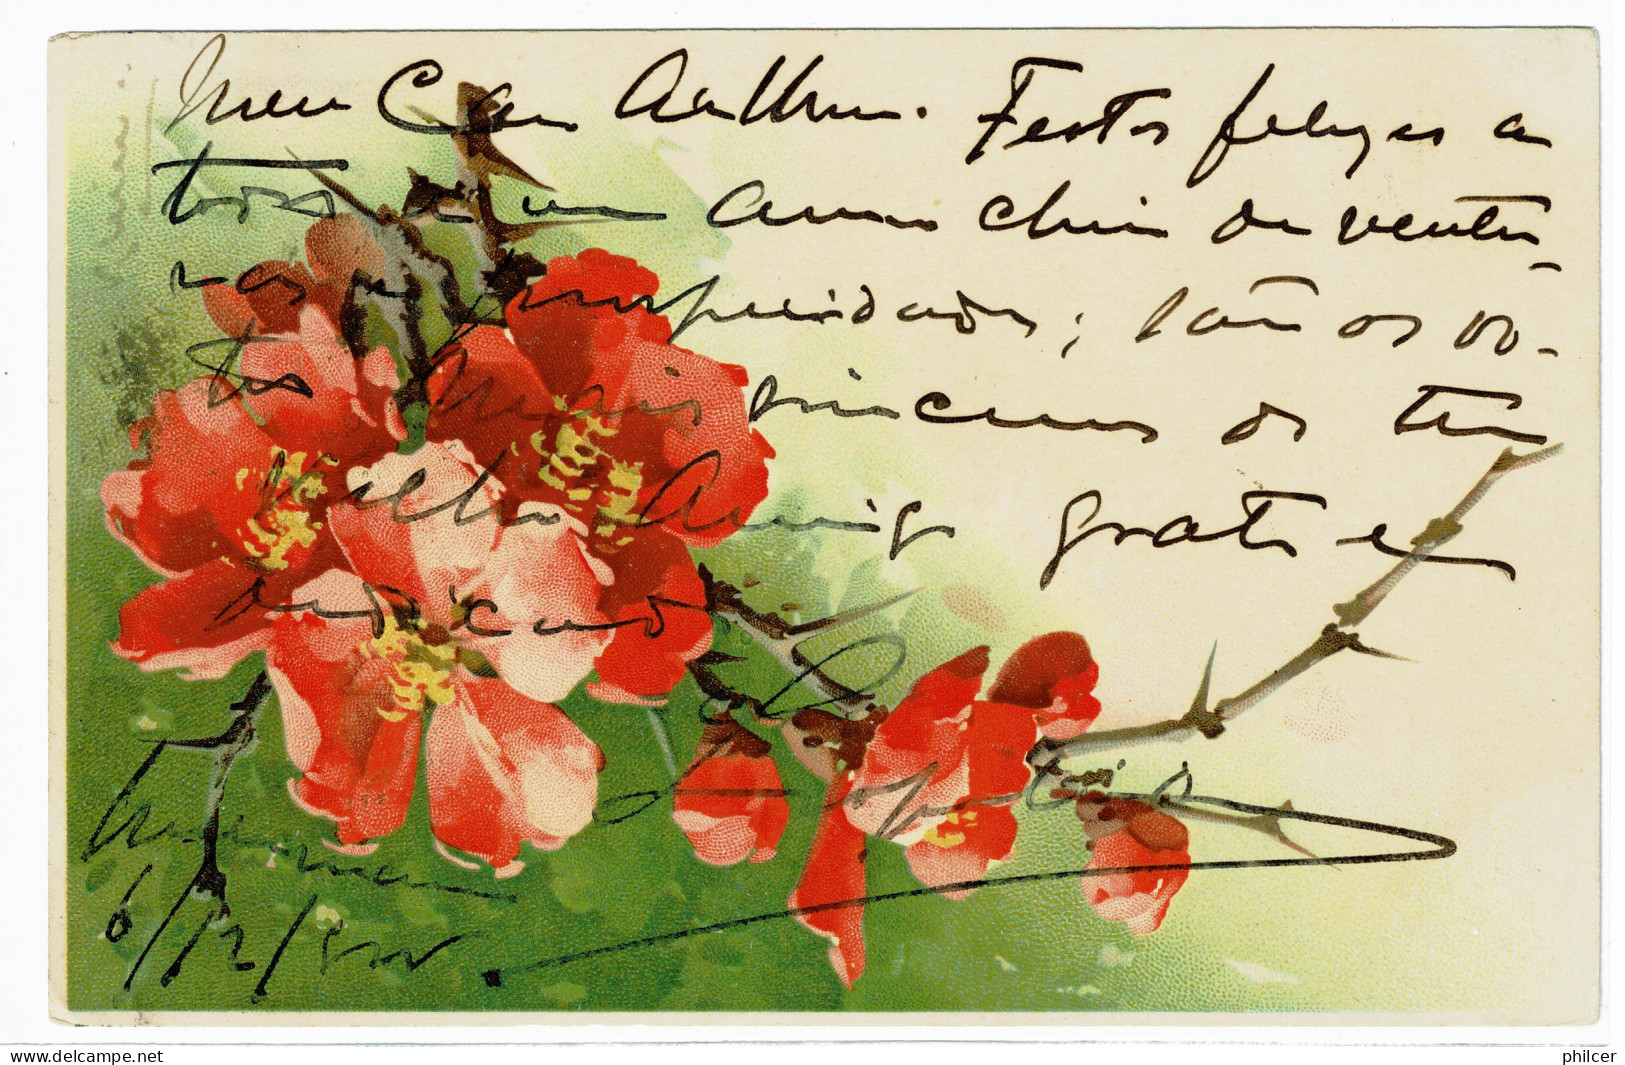 Meu Caro Arthur. Festas felizes a
todos e um anno cheio de ventu-
ras e prosperidades; são os vo-
tos mais sinceros do teu
Velho Amigo grato e
dedicado
6/12/
www.delcampe.net
philcer